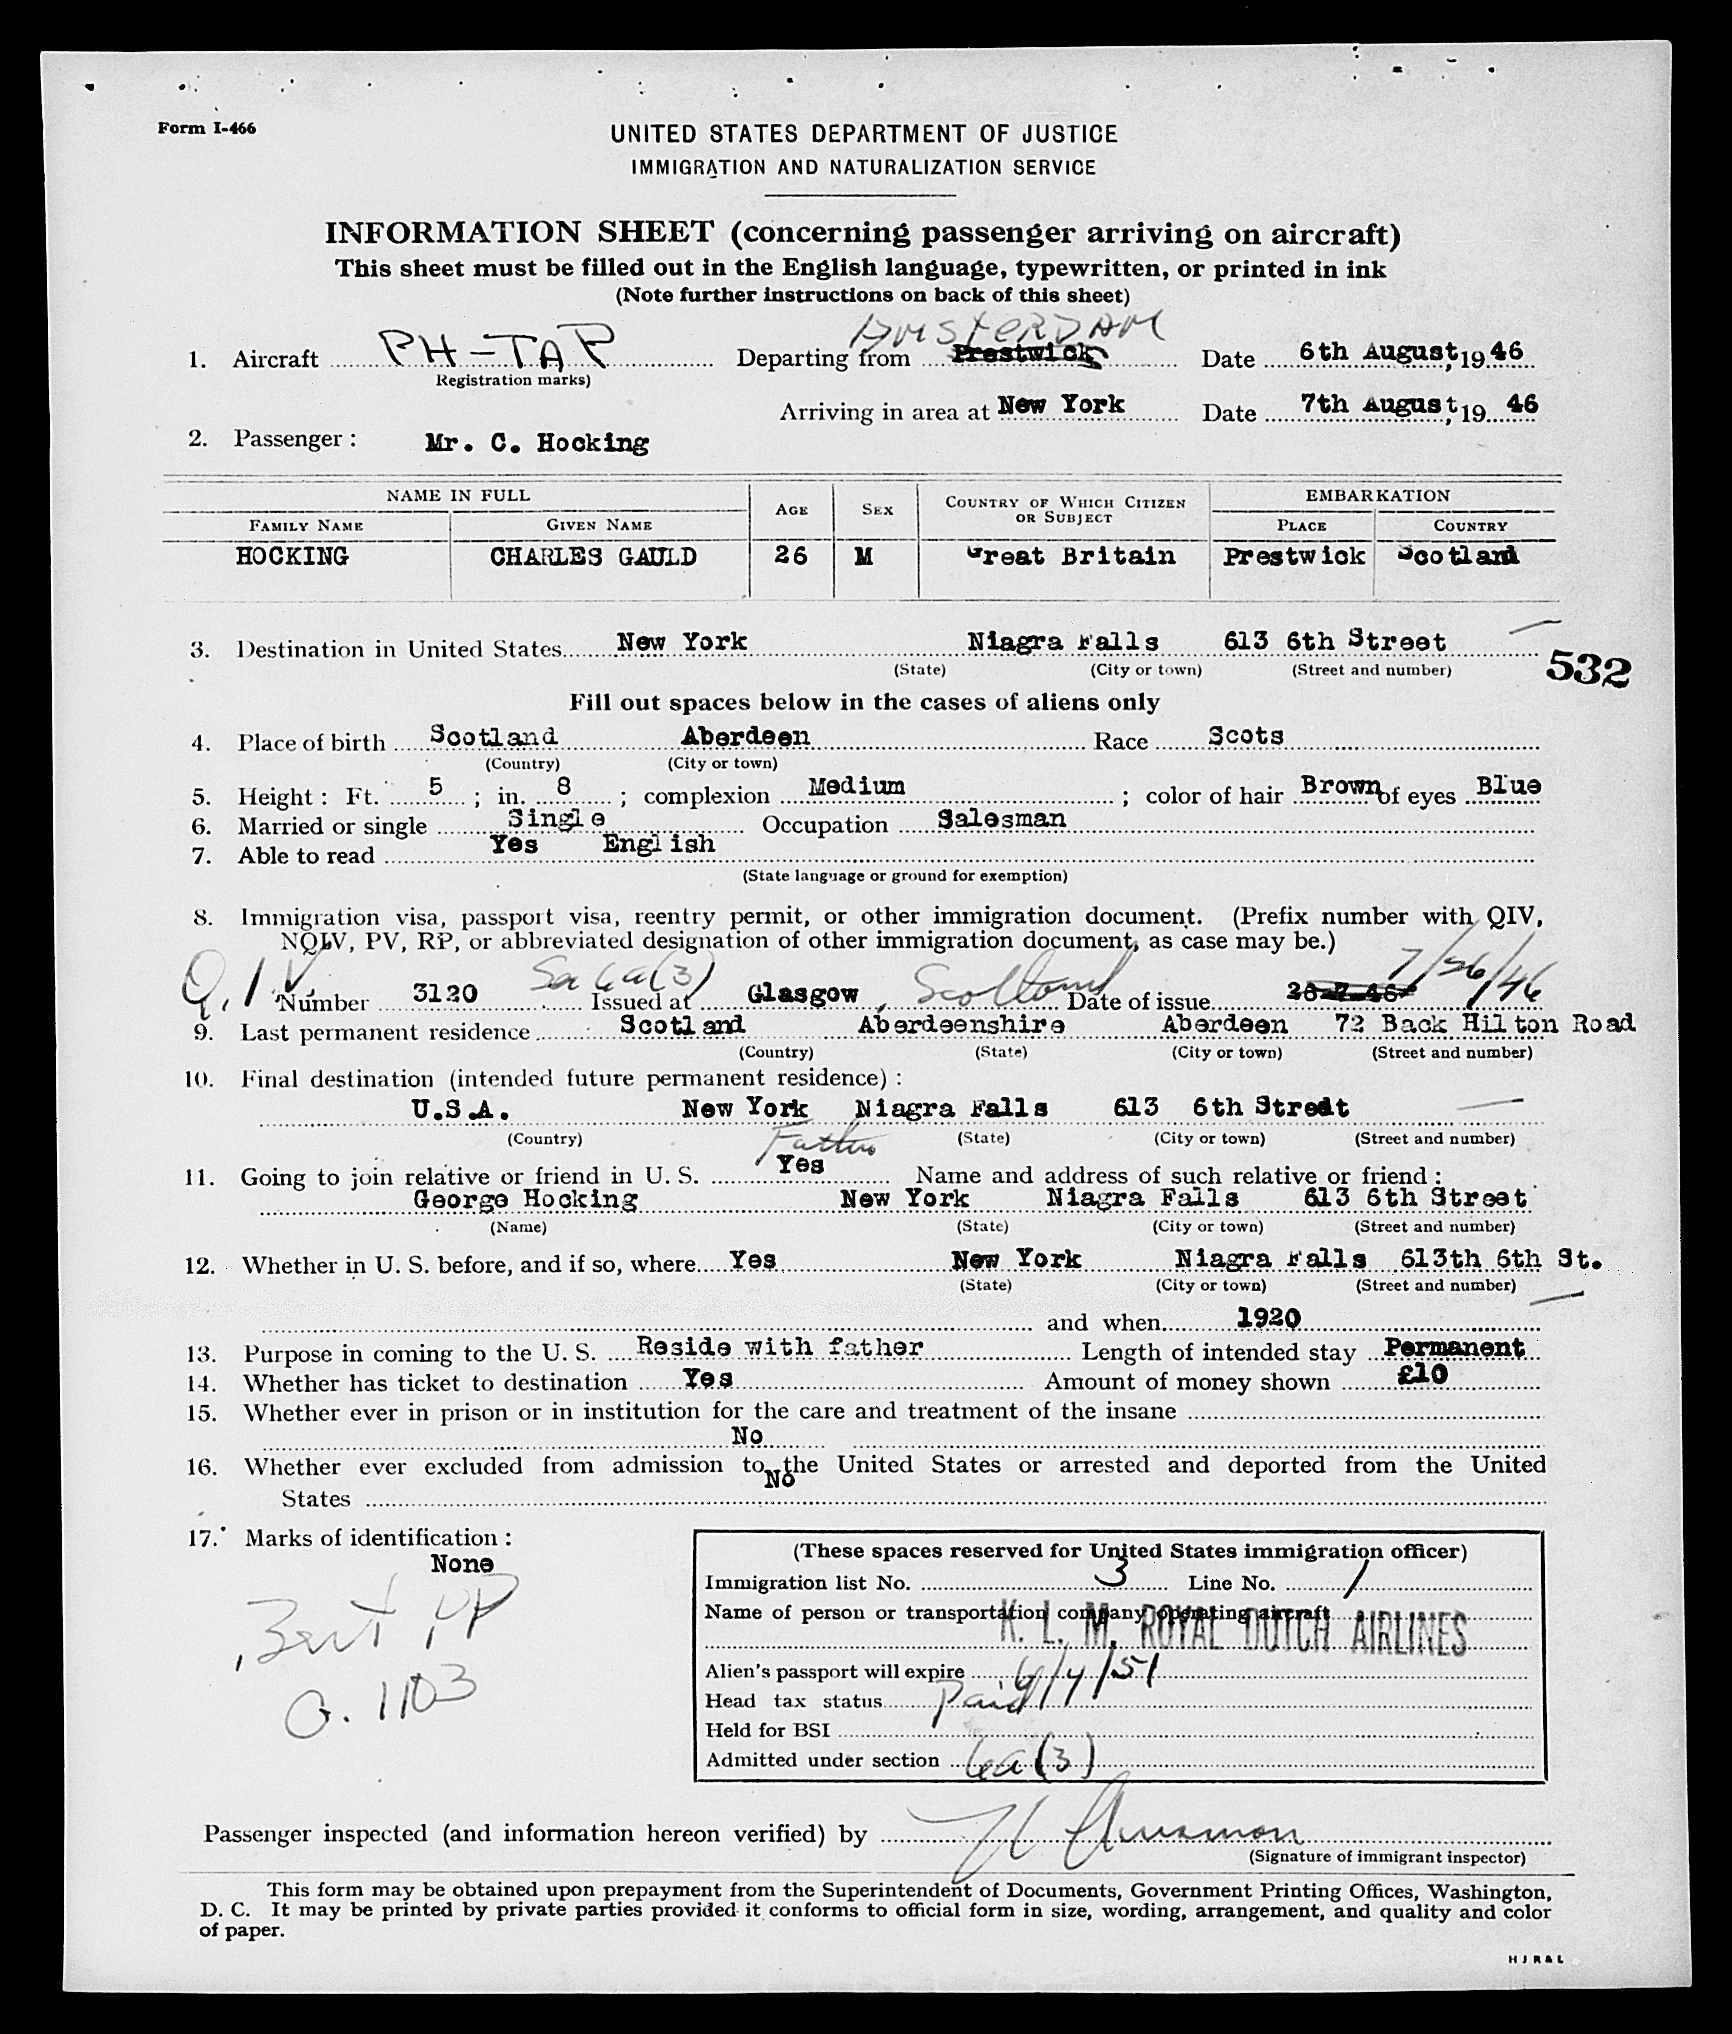 Form I-466
UNITED STATES DEPARTMENT OF JUSTICE
IMMIGRATION AND NATURALIZATION SERVICE
INFORMATION SHEET (concerning passenger arriving on aircraft)
This sheet must be filled out in the English language, typewritten, or printed in ink
(Note further instructions on back of this sheet)
AMSTERDAM
1. Aircraft PH-TAR Departing from Prestwick Date 6th August, 19 46
(Registration marks)
Arriving in area at New York Date 7th August, 19 46
2. Passenger: Mr. C. Hocking
NAME IN FULL AGE SEX COUNTRY OF WHICH CITIZEN OR SUBJECT EMBARKATION
FAMILY NAME GIVEN NAME PLACE COUNTRY
HOCKING CHARLES GAULD 26 M Great Britain Prestwick Scotland
3. Destination in United States New York Niagra Falls 613 6th Street
(State) (City or town) (Street and number)
532
Fill out spaces below in the cases of aliens only
4. Place of birth Scotland Aberdeen Race Scots
(Country) (City or town)
5. Height: Ft. 5 ; in. 8 ; complexion Medium ; color of hair Brown of eyes Blue
6. Married or single Single Occupation Salesman
7. Able to read Yes English
(State language or ground for exemption)
8. Immigration visa, passport visa, reentry permit, or other immigration document. (Prefix number with QIV,
NQIV, PV, RP, or abbreviated designation of other immigration document, as case may be.)
Q.I.V. Number 3120 Sec 6a(3) Issued at Glasgow, Scotland Date of issue 26-7-46 7/26/46
9. Last permanent residence Scotland Aberdeenshire Aberdeen 72 Back Hilton Road
(Country) (State) (City or town) (Street and number)
10. Final destination (intended future permanent residence):
U.S.A. New York Niagra Falls 613 6th Street
(Country) (State) (City or town) (Street and number)
Father
11. Going to join relative or friend in U. S. Yes Name and address of such relative or friend:
George Hocking New York Niagra Falls 613 6th Street
(Name) (State) (City or town) (Street and number)
12. Whether in U. S. before, and if so, where Yes New York Niagra Falls 613th 6th St.
(State) (City or town) (Street and number)
and when 1920
13. Purpose in coming to the U. S. Reside with father Length of intended stay Permanent
14. Whether has ticket to destination Yes Amount of money shown £10
15. Whether ever in prison or in institution for the care and treatment of the insane
No
16. Whether ever excluded from admission to the United States or arrested and deported from the United
No
States
17. Marks of identification:
None
G. 1103
(These spaces reserved for United States immigration officer)
Immigration list No. 3 Line No. 1
Name of person or transportation company operating aircraft
K. L. M. ROYAL DUTCH AIRLINES
Alien's passport will expire 6/4/51
Head tax status Paid
Held for BSI
Admitted under section 6a(3)
Passenger inspected (and information hereon verified) by
(Signature of immigrant inspector)
This form may be obtained upon prepayment from the Superintendent of Documents, Government Printing Offices, Washington,
D. C. It may be printed by private parties provided it conforms to official form in size, wording, arrangement, and quality and color
of paper.
H J R & L